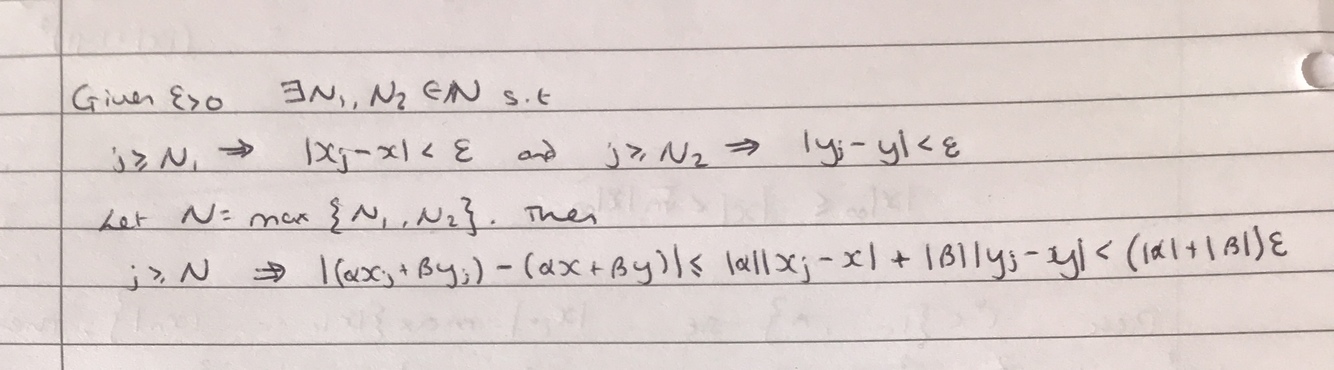 Given ε>0 ∃N₁, N₂ ∈ℕ s.t
j≥N₁ ⇒ |xⱼ-x|< ε and j≥N₂ ⇒ |yⱼ-y|<ε
Let N= max {N₁,N₂}. Then
j≥N ⇒ |(αxⱼ+βyⱼ)-(αx+βy)|≤ |α||xⱼ-x| + |β||yⱼ-y| < (|α|+|β|)ε